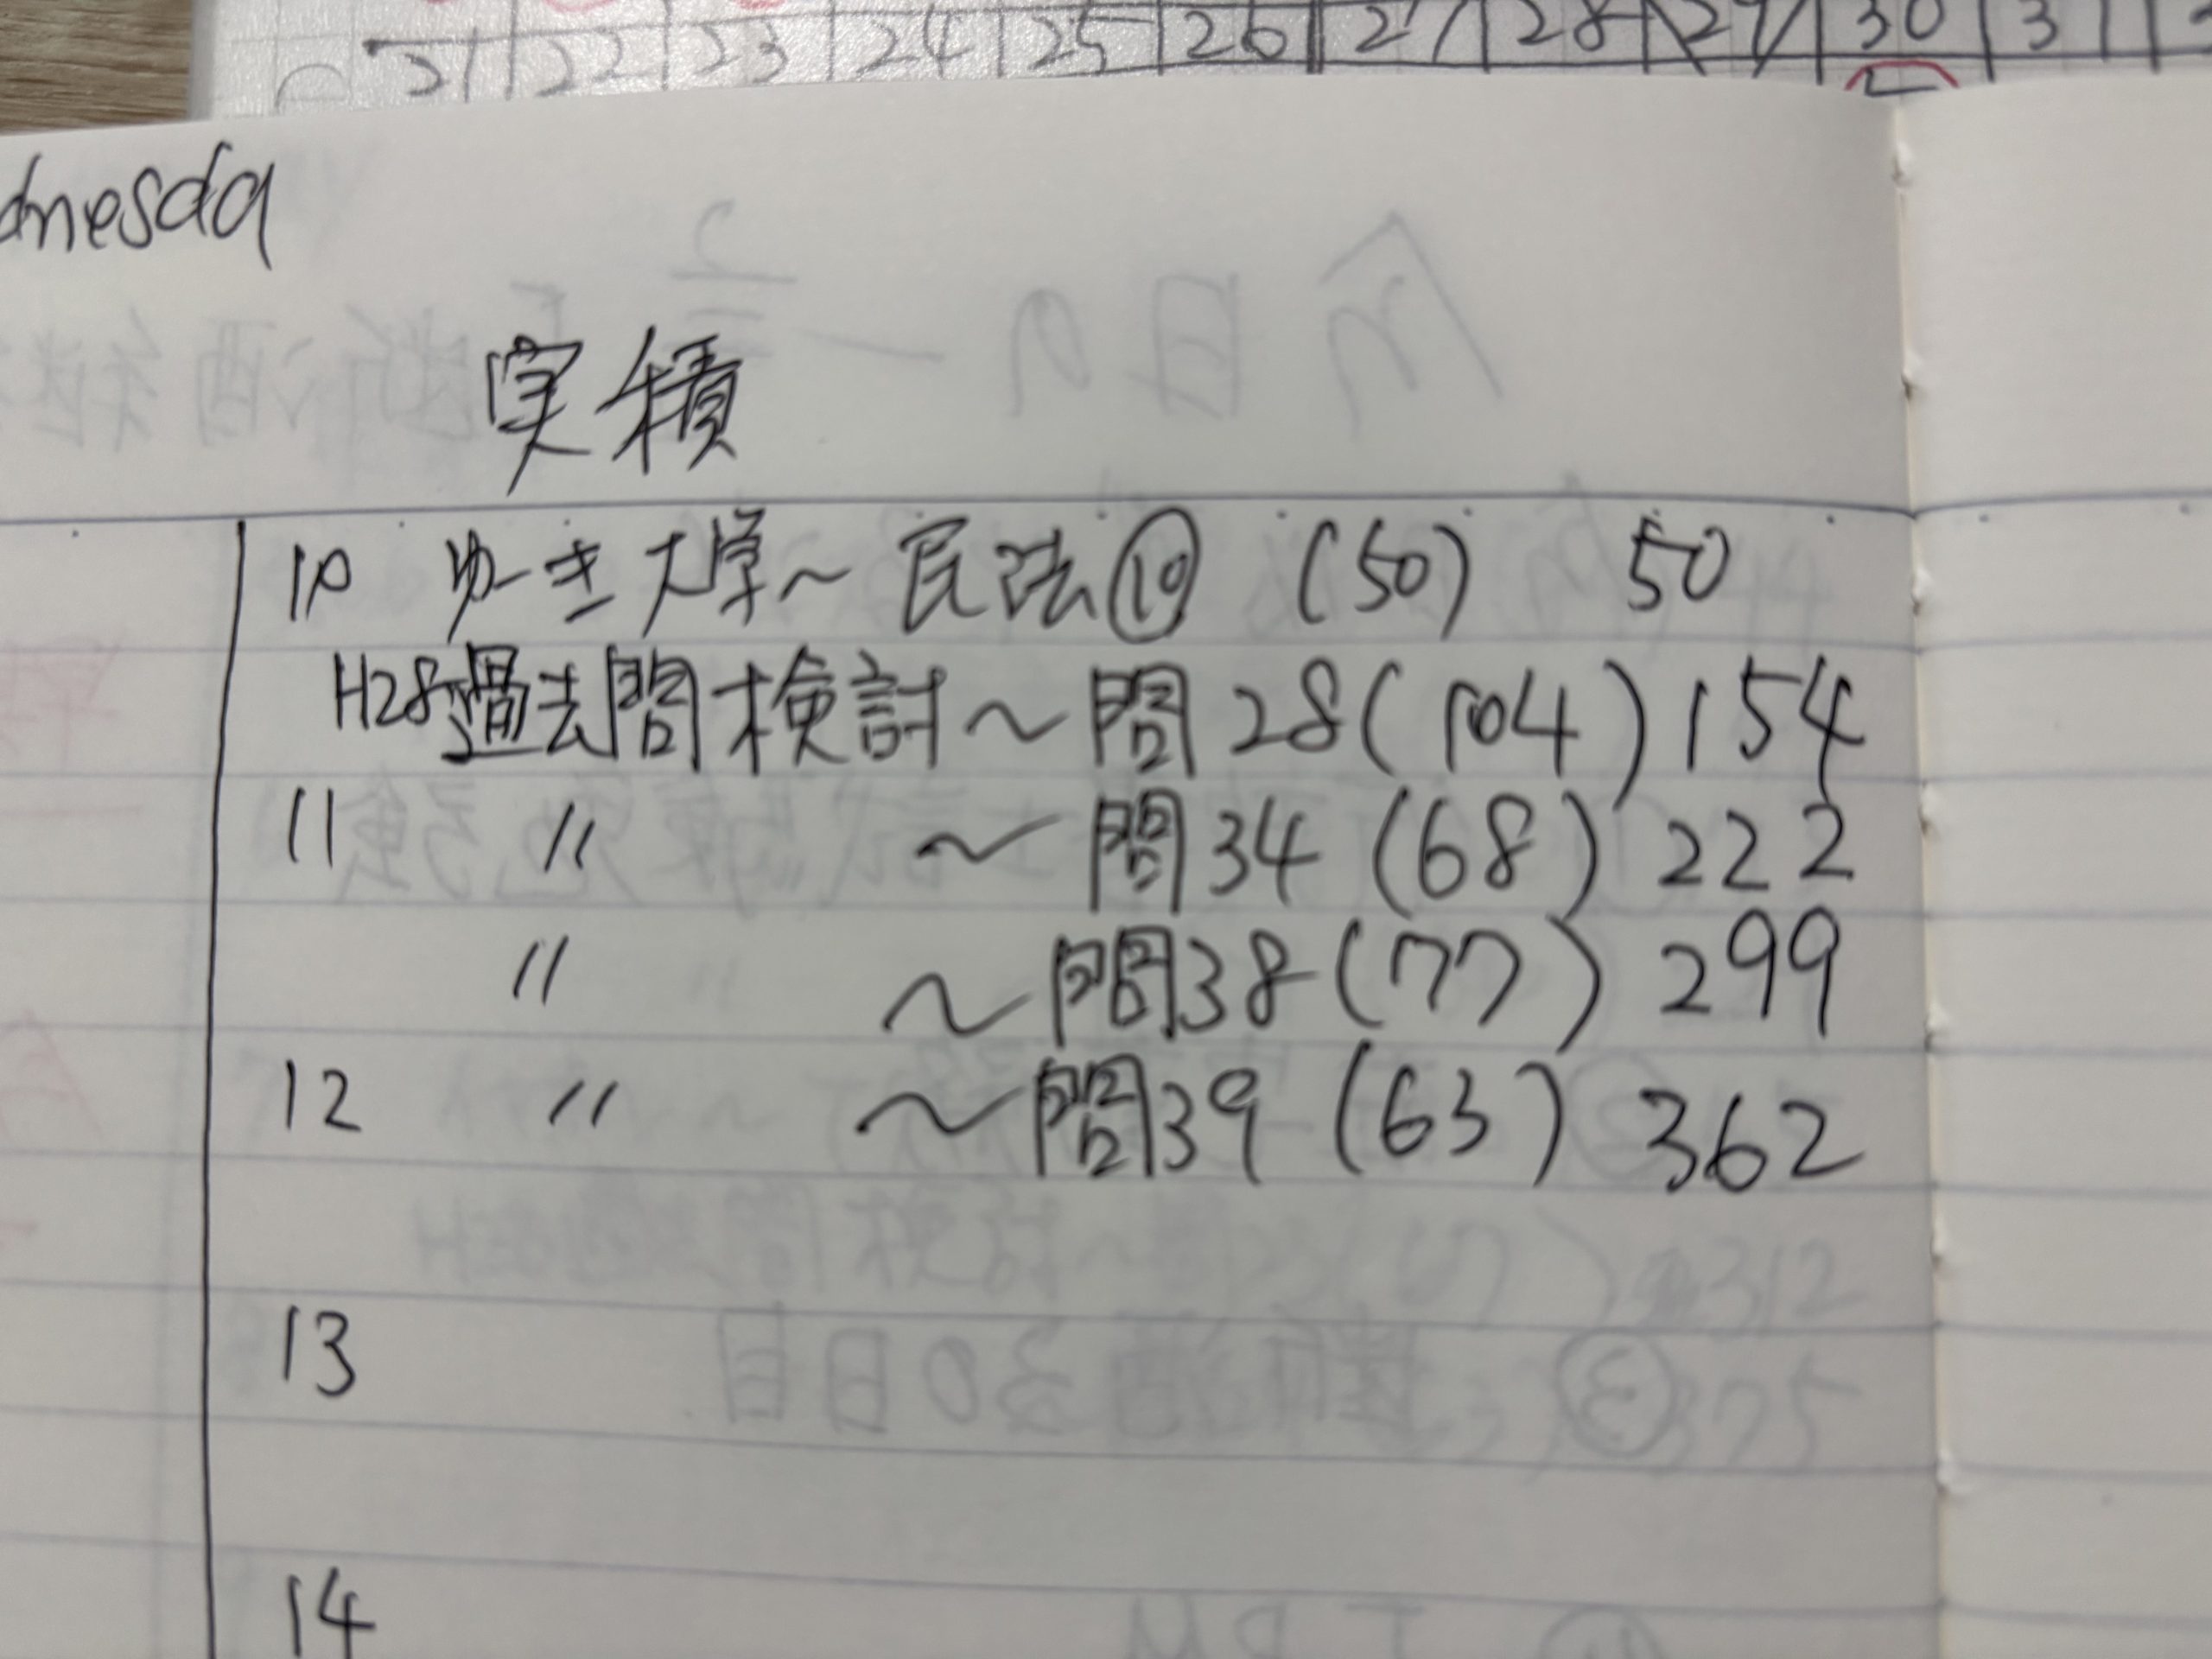 21 22 23 24 25 26 27 28 29 30 31
dnesda
実積
10 ゆーき大学～民法⑲ (50) 50
H28過去問検討～問28(104)154
11 〃 ～問34(68)222
〃 ～問38(77)299
12 〃 ～問39(63)362
13
14